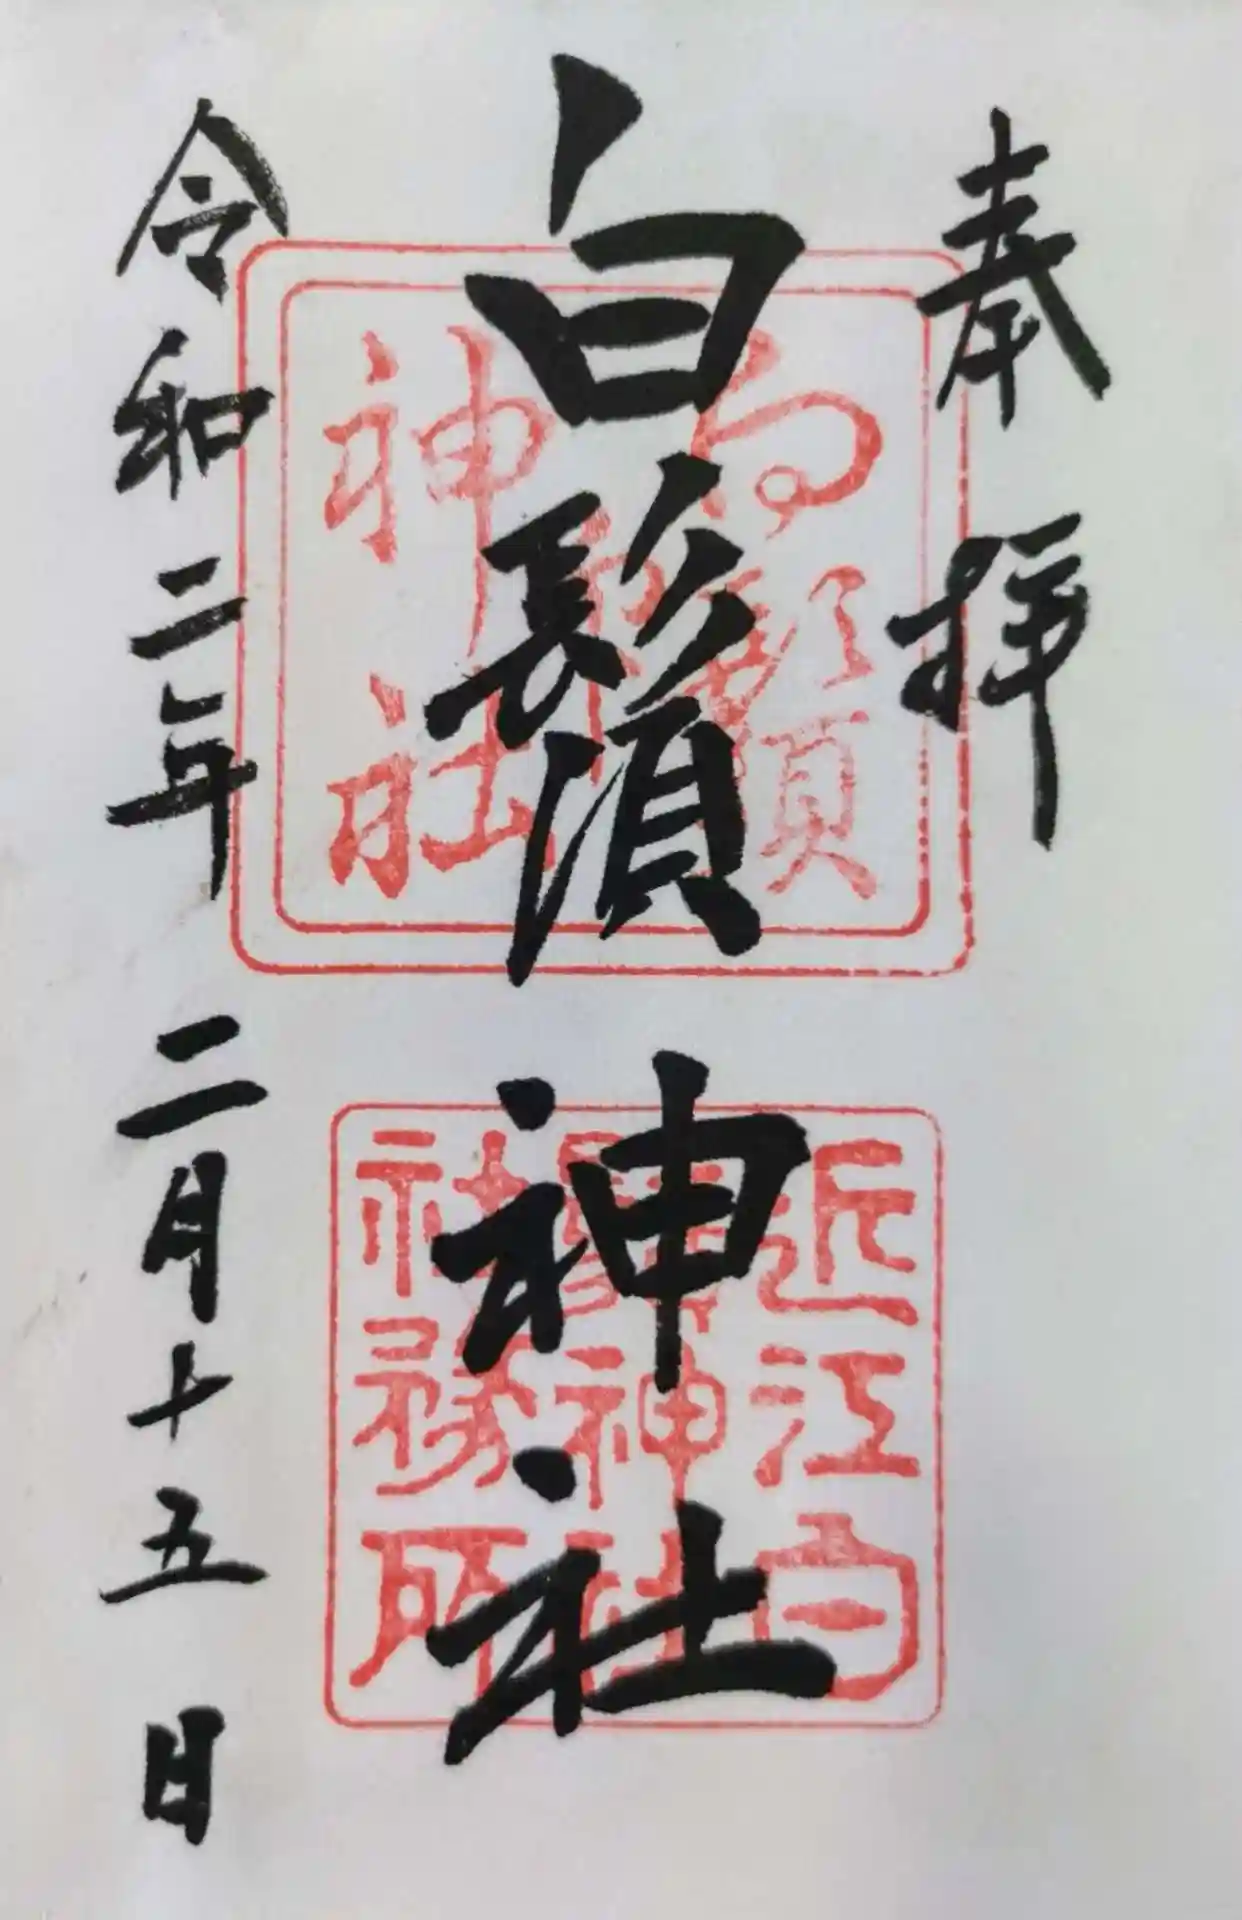 奉拝
白鬚神社
令和二年二月十五日
白鬚
神社
近江白
鬚神社
社務所